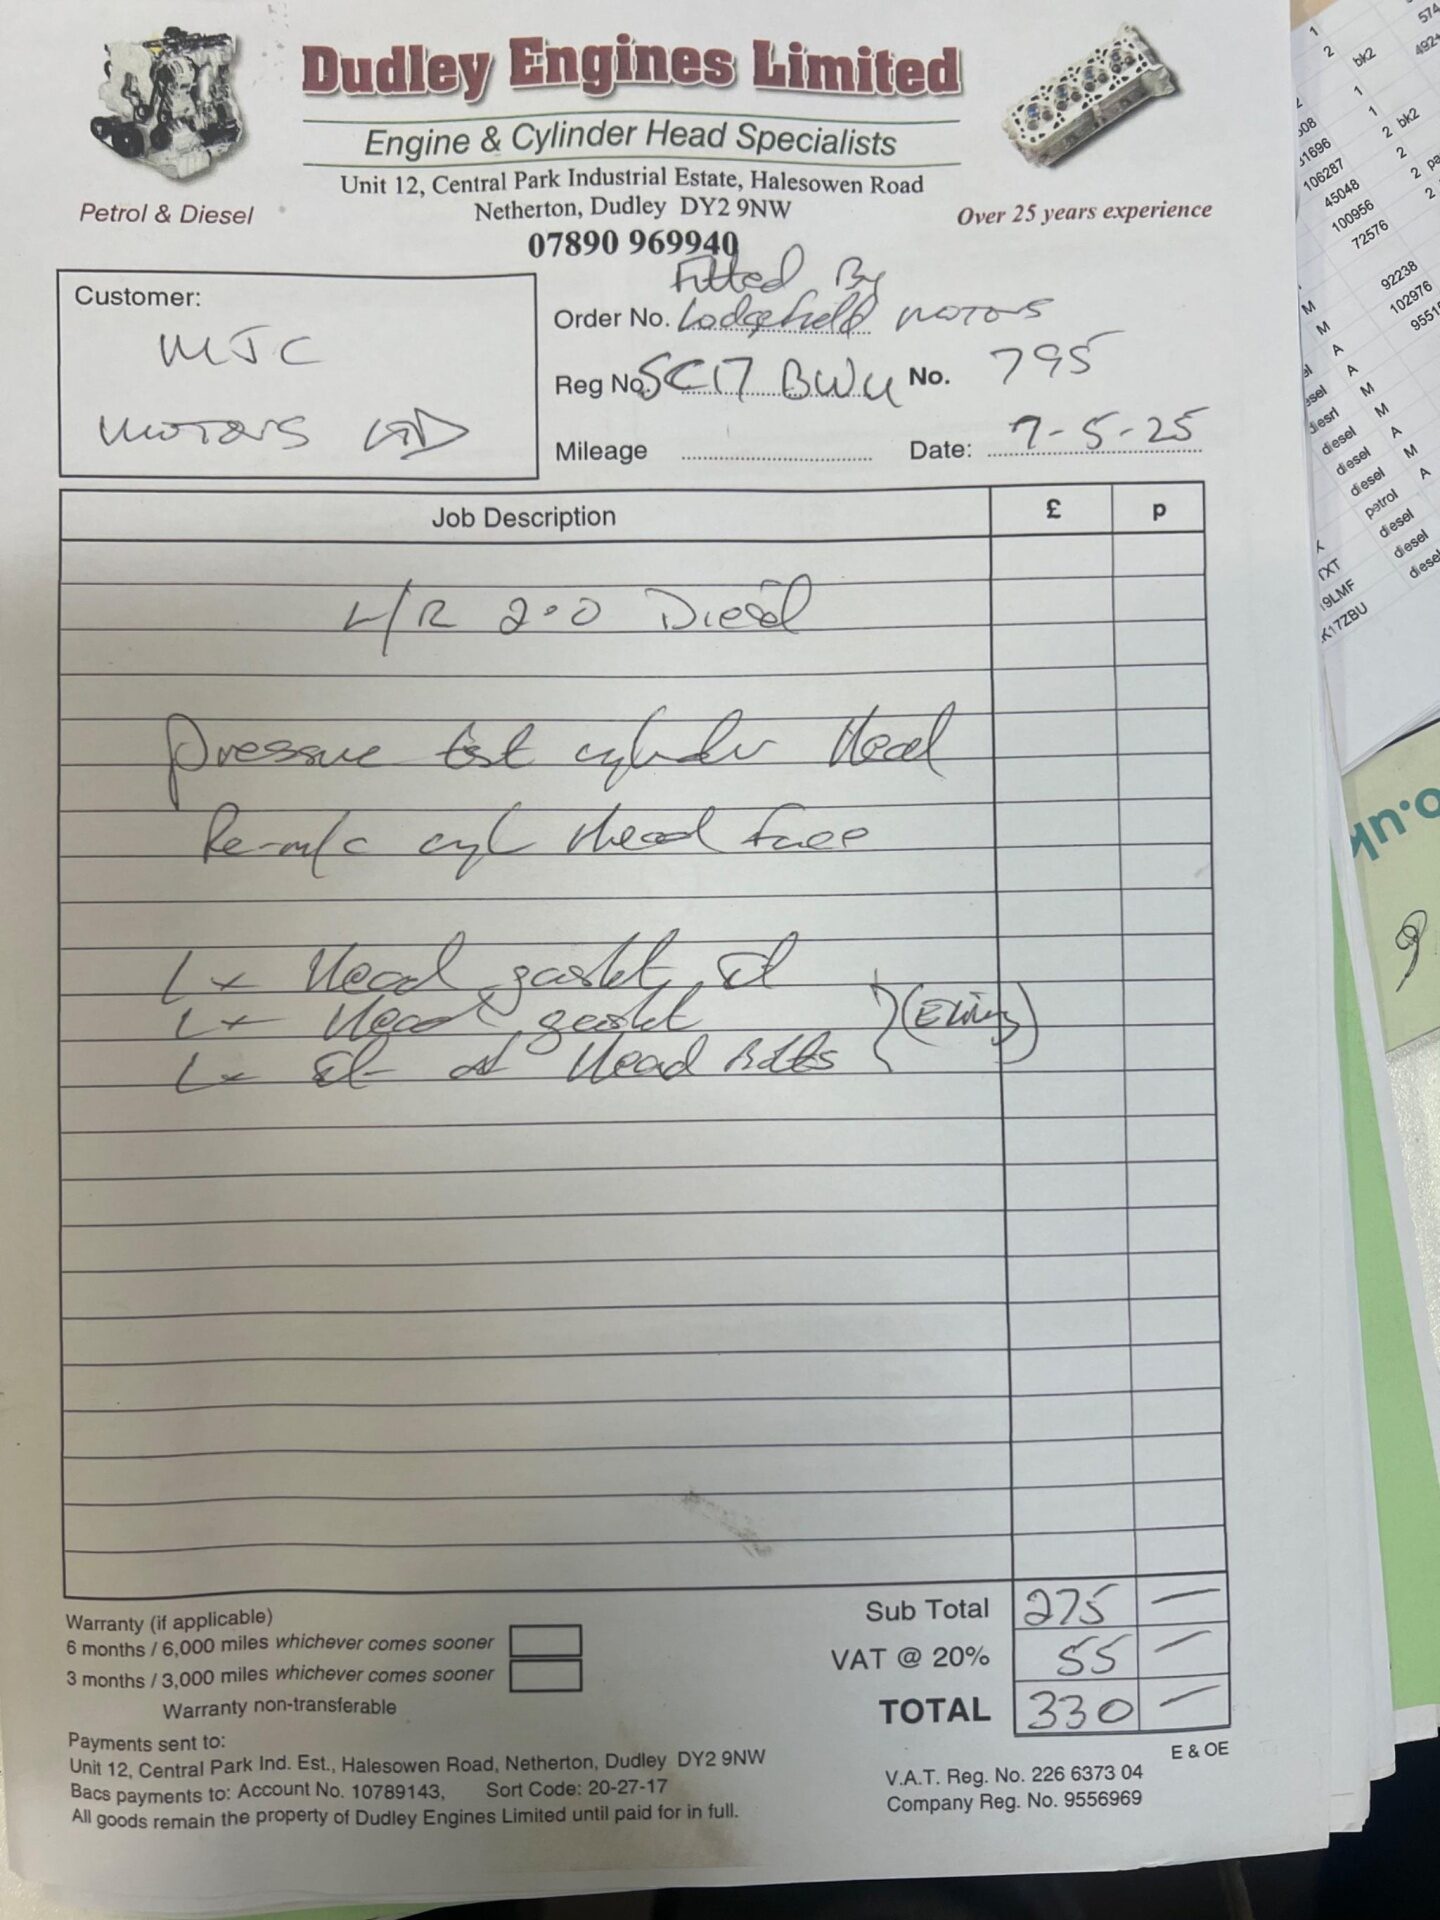 Dudley Engines Limited
Engine & Cylinder Head Specialists
Unit 12, Central Park Industrial Estate, Halesowen Road
Netherton, Dudley DY2 9NW
07890 969940
Petrol & Diesel
Over 25 years experience
Customer:
MJC
MOTORS LTD
Fitted By
Order No. Lodgefield MOTORS
Reg No. SC17 BWU No. 795
Mileage Date: 7-5-25
Job Description £ p
L/R 2.0 Diesel
Pressure test cylinder Head
Re-m/c cyl Head Face
1x Head gasket St
1x Head gasket
1x St of Head Bolts
(Elring)
Sub Total 275 —
VAT @ 20% 55 —
TOTAL 330 —
E & OE
Warranty (if applicable)
6 months / 6,000 miles whichever comes sooner
3 months / 3,000 miles whichever comes sooner
Warranty non-transferable
Payments sent to:
Unit 12, Central Park Ind. Est., Halesowen Road, Netherton, Dudley DY2 9NW
Bacs payments to: Account No. 10789143, Sort Code: 20-27-17
All goods remain the property of Dudley Engines Limited until paid for in full.
V.A.T. Reg. No. 226 6373 04
Company Reg. No. 9556969
1
2 bk2
574
1
1
2 bk2
2
2
106287
45048
100956
72576
92238
102976
M
M
A
A
M
M
A
M
A
diesel
diesel
diesel
petrol
diesel
diesel